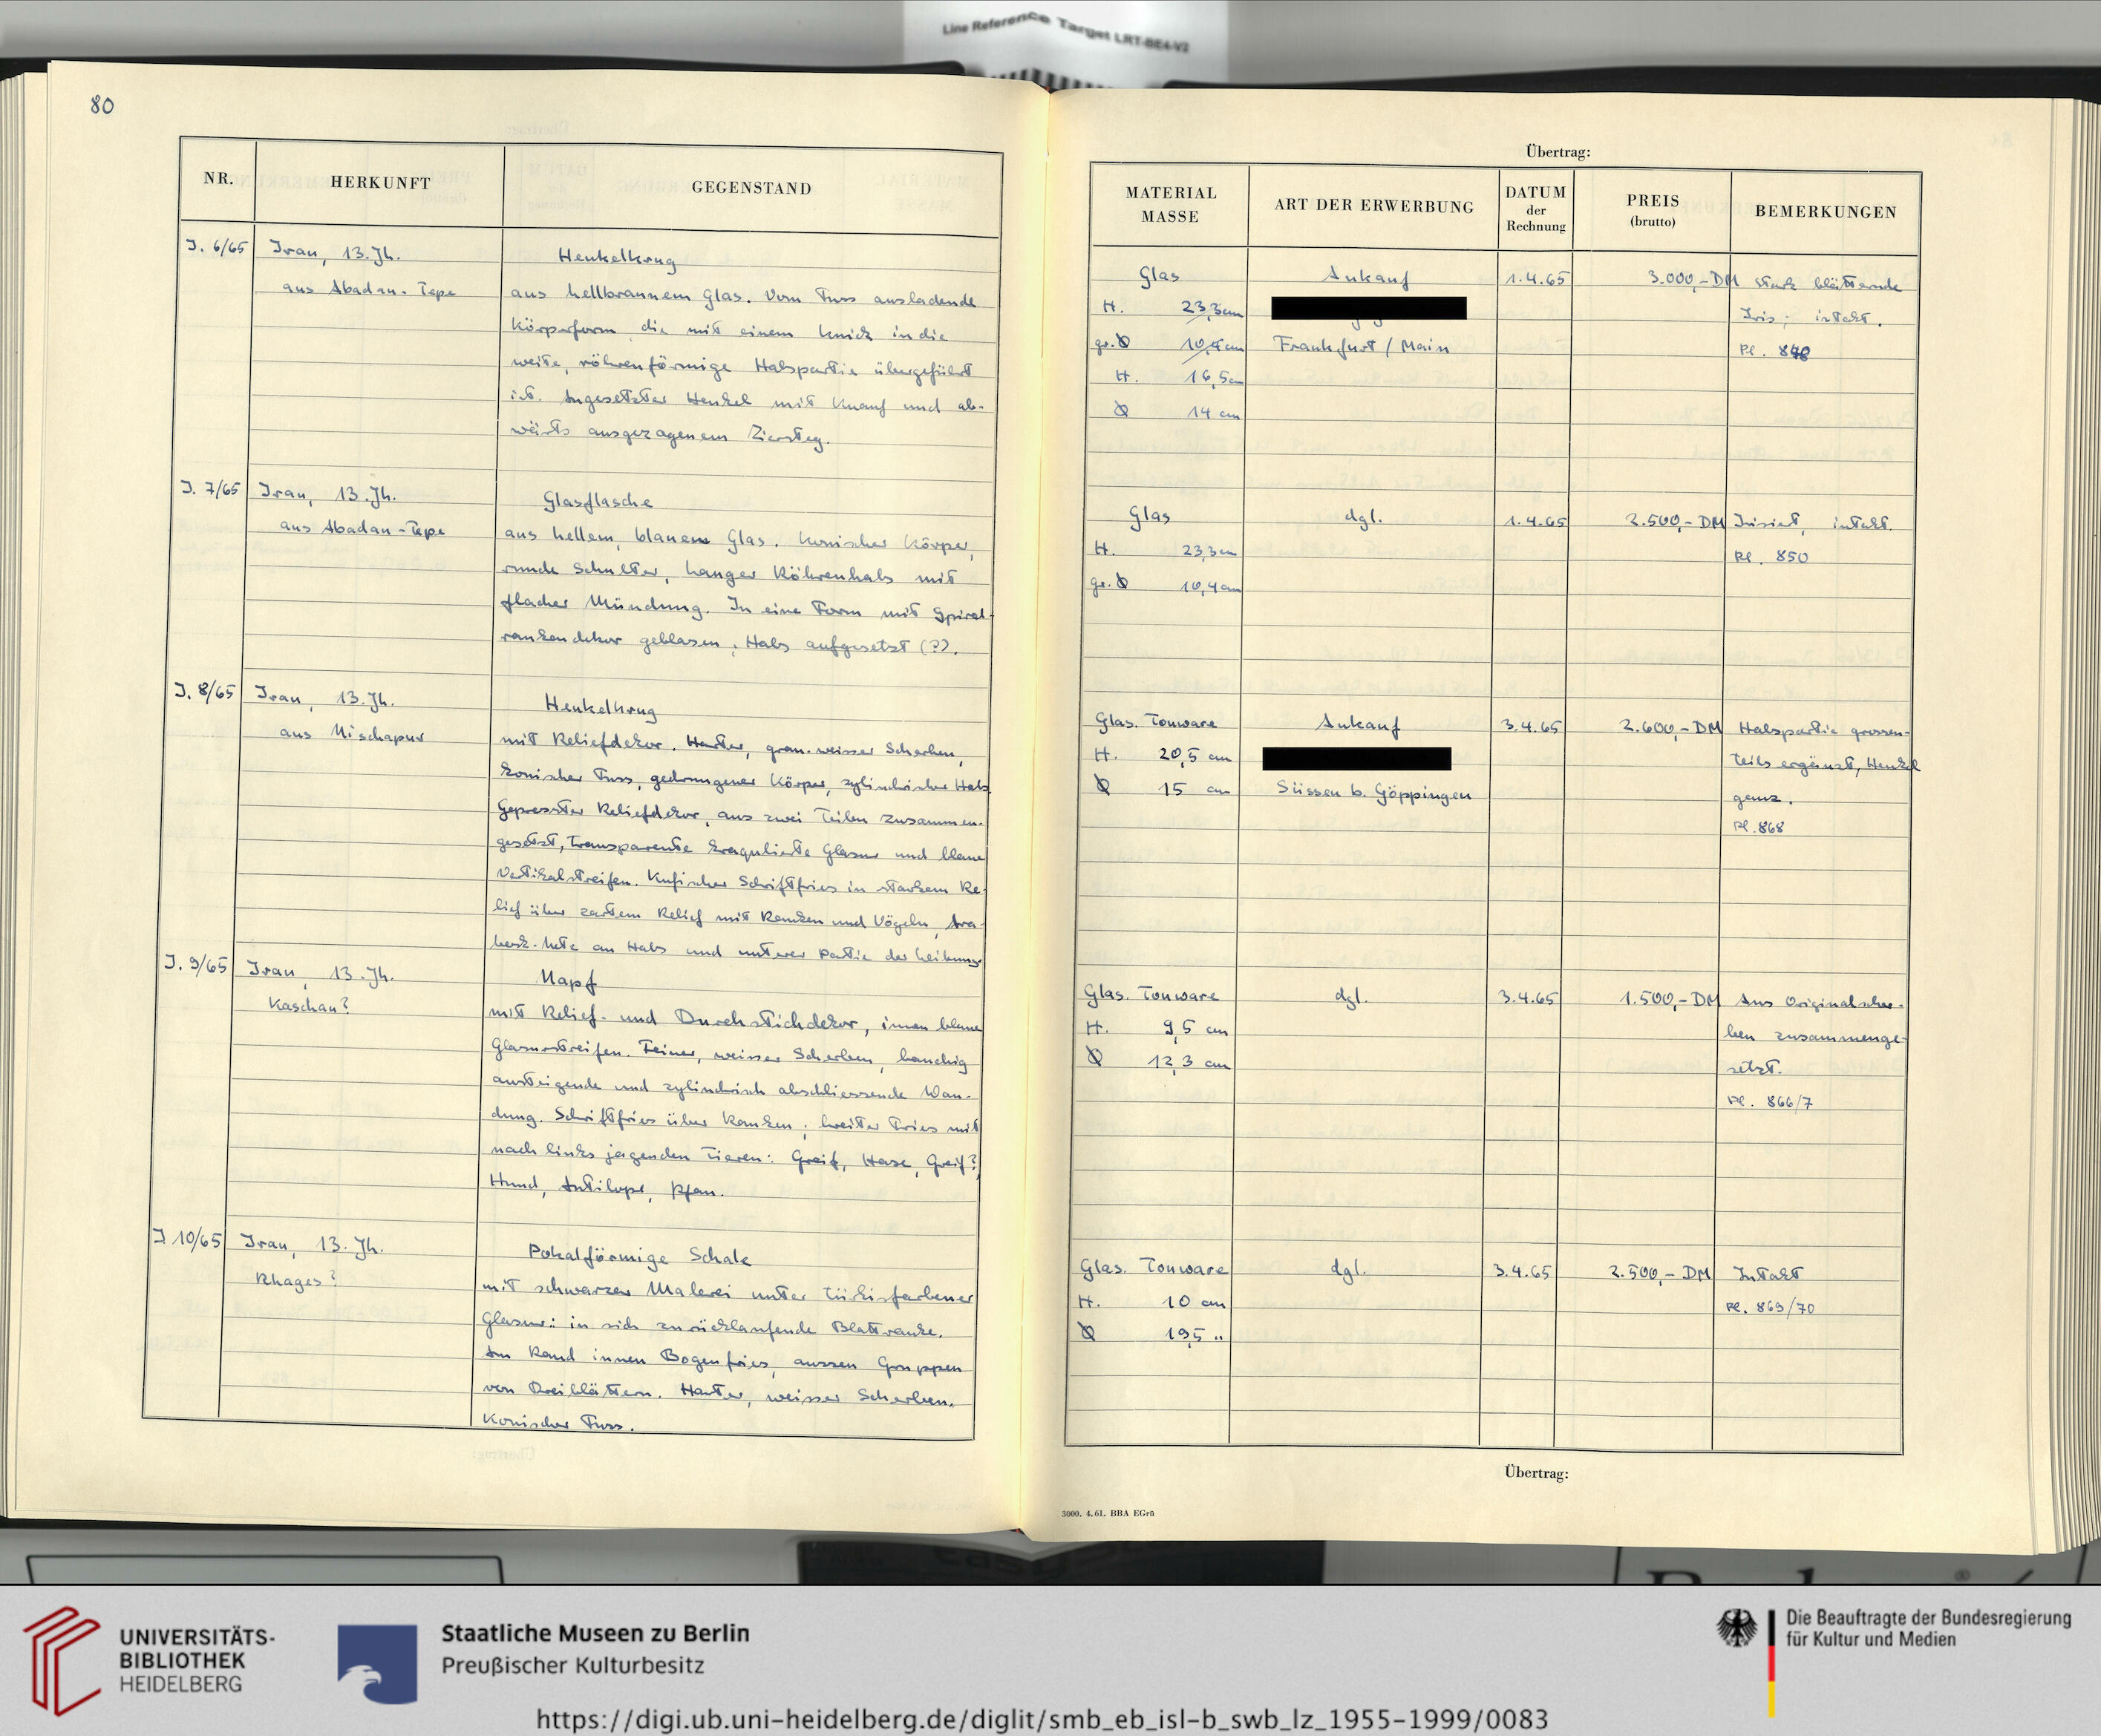 Line Reference Target LRT-BE4-V2
80
NR.
HERKUNFT
GEGENSTAND
J. 6/65
Iran, 13. Jh.
aus Abadan-Tepe
Henkelkrug
aus hellbraunem Glas. Vom Fuss ausladende
Körperform, die mit einem Knick in die
weite, röhrenförmige Halspartie übergeführt
ist. Angesetzter Henkel mit Knauf und ab-
wärts ausgezogenem Ziersteg.
J. 7/65
Iran, 13. Jh.
aus Abadan-Tepe
Glasflasche
aus hellem, blauem Glas. Konischer Körper,
runde Schulter, langer Röhrenhals mit
flacher Mündung. In eine Form mit Spiral-
rankendekor geblasen, Hals aufgesetzt (?).
J. 8/65
Iran, 13. Jh.
aus Nischapur
Henkelkrug
mit Reliefdekor. Harter, grau-weisser Scherben,
konischer Fuss, gedrungener Körper, zylindrischer Hals.
Gepresster Reliefdekor, aus zwei Teilen zusammen-
gesetzt, transparente Glasur und blaue
Vertikalstreifen. Kufischer Schriftfries in starkem Re-
lief über zartem Relief mit Ranken und Vögeln,
am Hals und unterer Partie der Leibung
J. 9/65
Iran, 13. Jh.
Kaschan?
Napf
mit Relief- und Durchstichdekor, innen blaue
Glasurstreifen. Feiner, weisser Scherben, bauchig
ansteigende und zylindrisch abschliessende Wan-
dung. Schriftfries über Ranken; breiter Fries mit
nach links jagenden Tieren: Greif, Hase, Greif?,
Hund, Antilope, Pfau.
J 10/65
Iran, 13. Jh.
Rhages?
Pokalförmige Schale
mit schwarzer Malerei unter türkisfarbener
Glasur: in sich zurücklaufende Blattranke.
Am Rand innen Bogenfries, aussen Gruppen
von Dreiblättern. Harter, weisser Scherben.
Konischer Fuss.
Übertrag:
MATERIAL
MASSE
ART DER ERWERBUNG
DATUM
der
Rechnung
PREIS
(brutto)
BEMERKUNGEN
Glas
Ankauf
1.4.65
3.000,- DM
stark blätternde
H. 23,3 cm
Iris; intakt.
gr. Ø 10,4 cm
Frankfurt / Main
Pl.
H. 16,5 cm
Ø 14 cm
Glas
dgl.
1.4.65
2.500,- DM
Irisiert, intakt.
H. 23,3 cm
Pl. 850
gr. Ø 10,4 cm
Glas. Tonware
Ankauf
3.4.65
2.600,- DM
Halspartie grossen-
H. 20,5 cm
teils ergänzt, Henkel
Ø 15 cm
Süssen b. Göppingen
ganz.
Pl. 868
Glas. Tonware
dgl.
3.4.65
1.500,- DM
Aus Originalscher-
H. 9,5 cm
ben zusammenge-
Ø 12,3 cm
setzt.
Pl. 866/7
Glas. Tonware
dgl.
3.4.65
2.500,- DM
Intakt
H. 10 cm
Pl. 869/70
Ø 19,5 "
Übertrag:
3000. 4.61. BBA EGrü
UNIVERSITÄTS-
BIBLIOTHEK
HEIDELBERG
Staatliche Museen zu Berlin
Preußischer Kulturbesitz
Die Beauftragte der Bundesregierung
für Kultur und Medien
https://digi.ub.uni-heidelberg.de/diglit/smb_eb_isl-b_swb_lz_1955-1999/0083